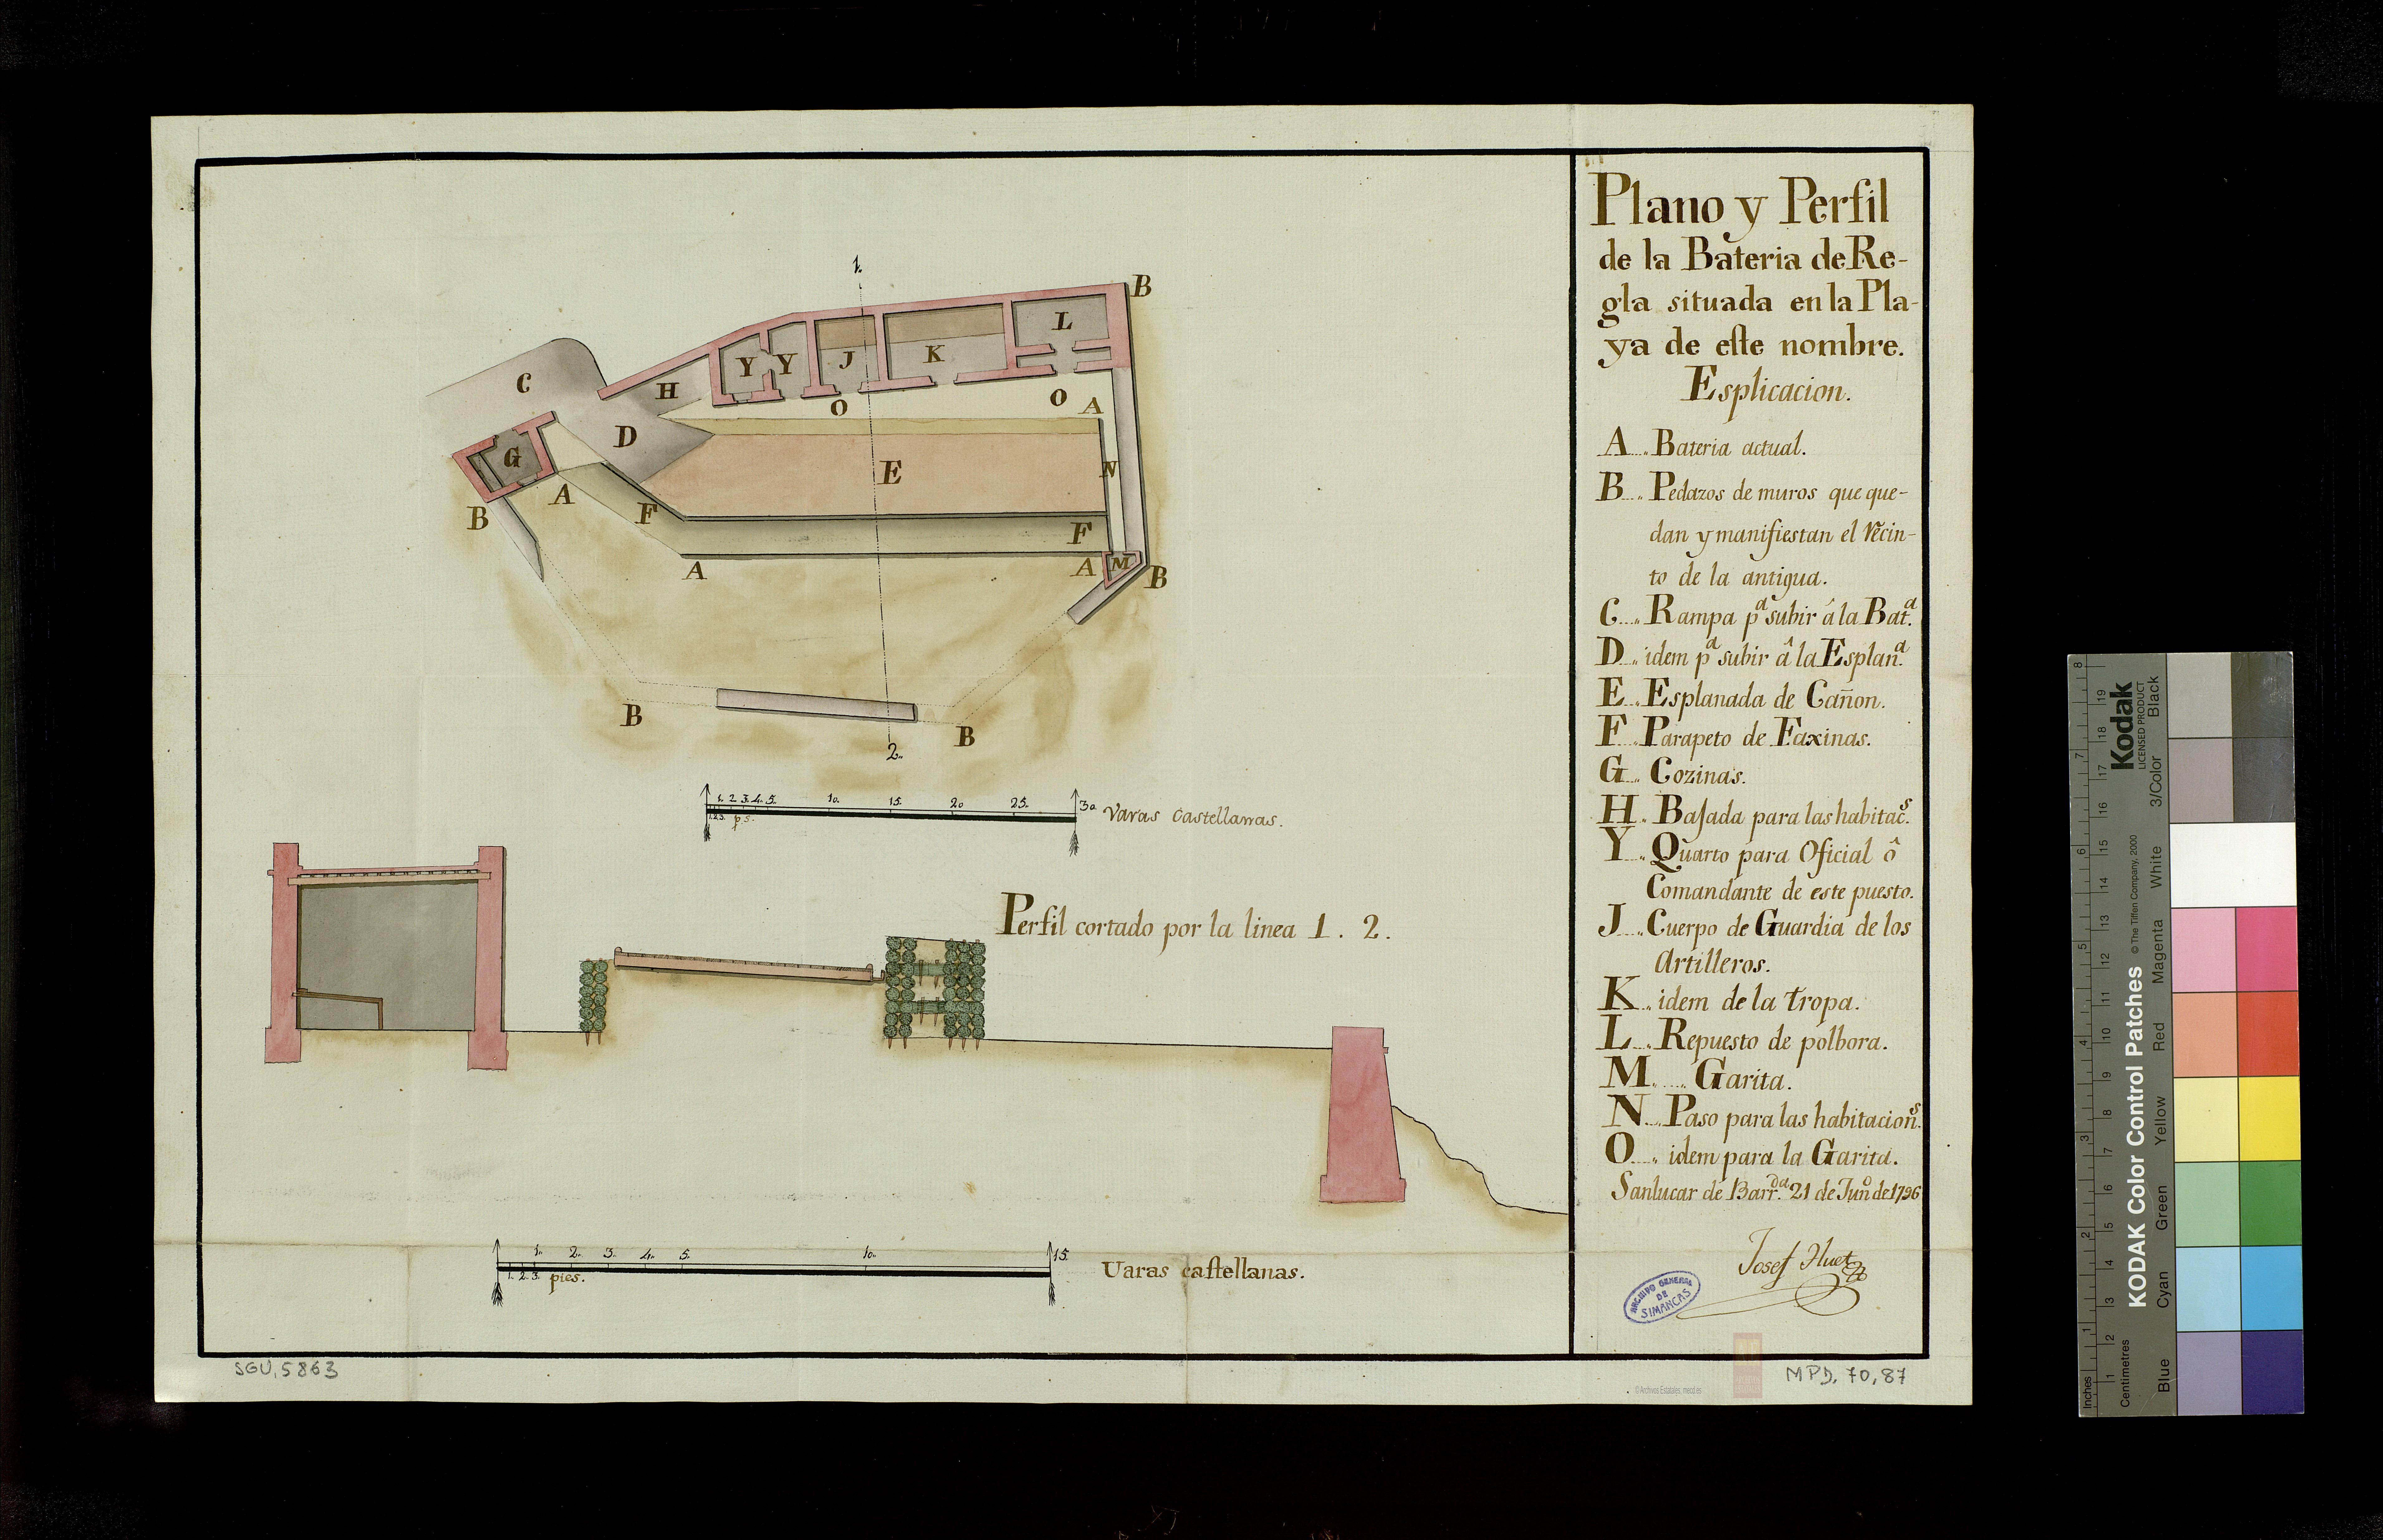 Plano y Perfil
de la Bateria de Re-
gla situada en la Pla-
ya de este nombre.
Esplicacion.
A... Bateria actual.
B... Pedazos de muros que que-
dan y manifiestan el recin-
to de la antigua.
C... Rampa pa subir â la Bata.
D.. idem pa subir â la Espland.a
E... Esplanada de Cañon.
F... Parapeto de Faxinas.
G... Cozinas.
H.. Bajada para las habitacs.
Y... Quarto para Oficial ô
Comandante de este puesto.
J... Cuerpo de Guardia de los
Artilleros.
K.. idem de la tropa.
L... Repuesto de polbora.
M..... Garita.
N... Paso para las habitacions.
O... idem para la Garita.
Sanlucar de Barrda. 21 de Juno de 1796
Josef Huet
ARCHIVO GENERAL
DE
SIMANCAS
1.
B
L
C
Y Y J K
H
O O A
D
G
E N
A
B F F
A A M B
B B
2.
1. 2. 3. 4. 5. 10. 15. 20. 25. 30 Varas Castellanas.
1.2.3. ps.
Perfil cortado por la linea 1. 2.
1. 2. 3. 4. 5. 10. 15. Uaras castellanas.
1. 2. 3. pies.
SGU, 5863
MPD, 70, 87
© Archivos Estatales, mecd.es
KODAK Color Control Patches
© The Tiffen Company, 2000
Kodak
LICENSED PRODUCT
Inches 1 2 3 4 5 6 7 8
Centimetres 1 2 3 4 5 6 7 8 9 10 11 12 13 14 15 16 17 18 19
Blue Cyan Green Yellow Red Magenta White 3/Color Black